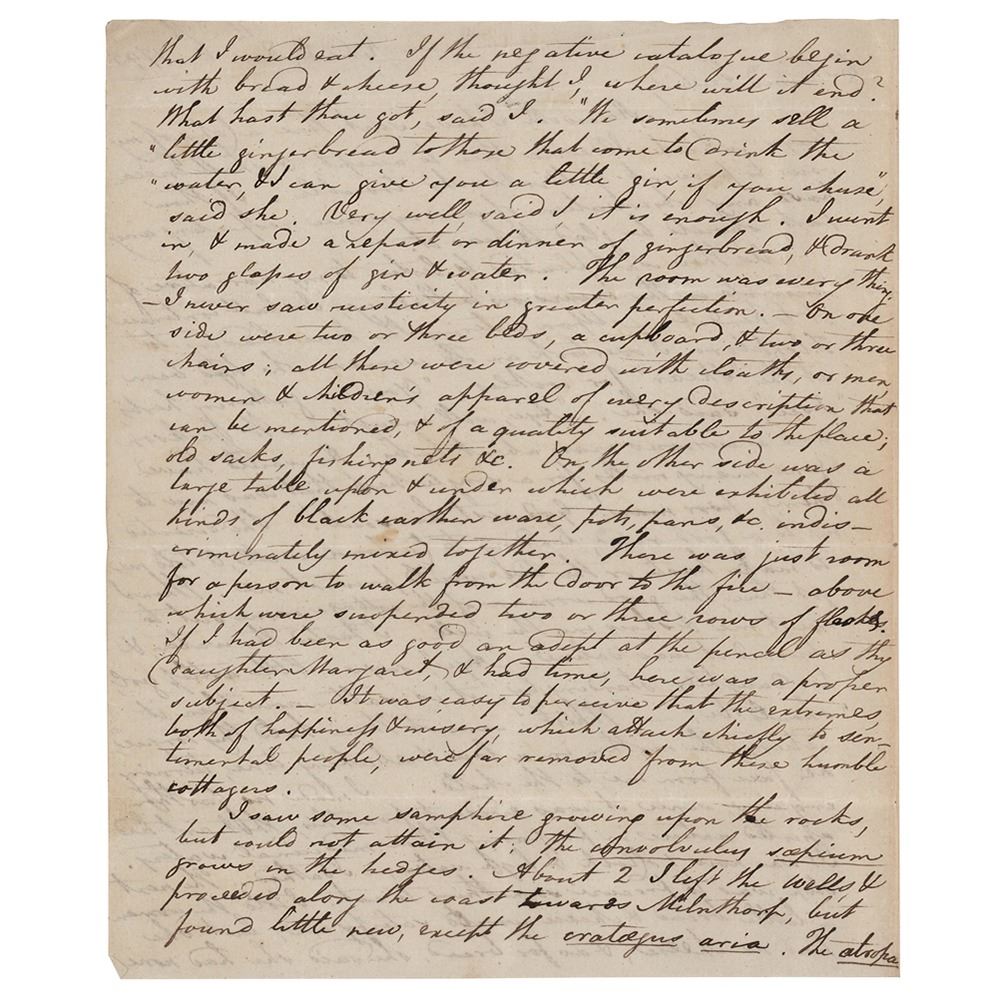 that I would eat. If the negative catalogue begin
with bread & cheese, thought I, where will it end?
What hast thou got, said I. "We sometimes sell a
"little gingerbread to those that come to drink the
"water, & I can give you a little gin, if you chuse",
said she. Very well, said I, it is enough. I went
in, & made a repast or dinner of gingerbread, & drank
two glasses of gin & water. The room was every thing.
— I never saw rusticity in greater perfection. — On one
side were two or three beds, a cupboard, & two or three
chairs; all these were covered with cloaths, or men,
women & children's apparel of every description that
can be mentioned, & of a quality suitable to the place;
old sacks, fishing nets &c. On the other side was a
large table upon & under which were exhibited all
kinds of black earthen ware, pots, pans, &c. indis-
criminately mixed together. There was just room
for a person to walk from the door to the fire — above
which were suspended two or three rows of
If I had been as good an adept at the pencil as thy
daughter Margaret, & had time, here was a proper
subject. — It was easy to perceive that the extremes,
both of happiness & misery, which attack chiefly to sen-
timental people, were far removed from these humble
cottagers.
I saw some samphire growing upon the rocks,
but could not attain it; the convolvulus sæpium
grows in the hedges. About 2 I left the wells &
proceeded along the coast towards Milnthorp, but
found little new, except the cratægus aria. The atropa